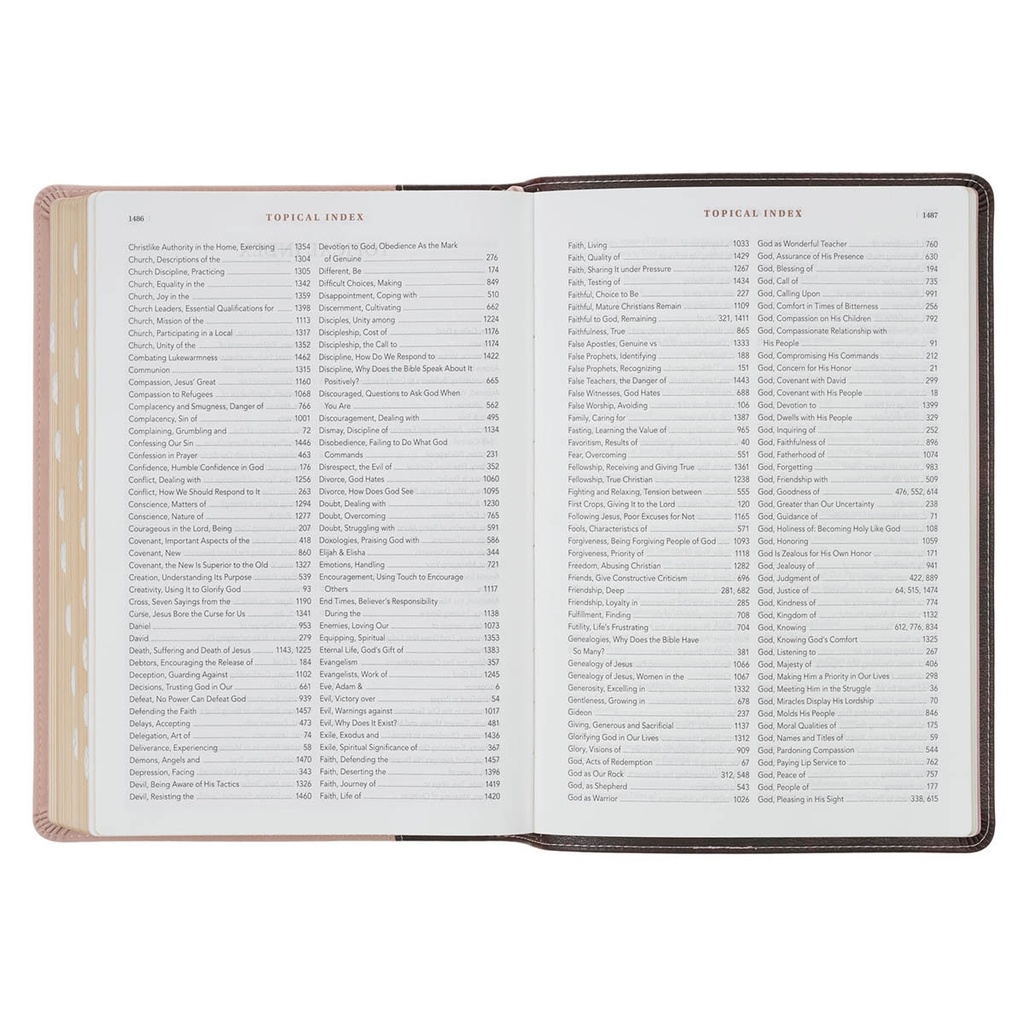 1486
TOPICAL INDEX
Christlike Authority in the Home, Exercising 1354
Church, Descriptions of the 1304
Church Discipline, Practicing 1305
Church, Equality in the 1342
Church, Joy in the 1359
Church Leaders, Essential Qualifications for 1398
Church, Mission of the 1113
Church, Participating in a Local 1317
Church, Unity of the 1352
Combating Lukewarmness 1462
Communion 1315
Compassion, Jesus' Great 1160
Compassion to Refugees 1068
Complacency and Smugness, Danger of 766
Complacency, Sin of 1001
Complaining, Grumbling and 72
Confessing Our Sin 1446
Confession in Prayer 463
Confidence, Humble Confidence in God 176
Conflict, Dealing with 1256
Conflict, How We Should Respond to It 263
Conscience, Matters of 1294
Conscience, Nature of 1277
Courageous in the Lord, Being 207
Covenant, Important Aspects of the 418
Covenant, New 860
Covenant, the New Is Superior to the Old 1327
Creation, Understanding Its Purpose 539
Creativity, Using It to Glorify God 93
Cross, Seven Sayings from the 1190
Curse, Jesus Bore the Curse for Us 1341
Daniel 953
David 279
Death, Suffering and Death of Jesus 1143, 1225
Debtors, Encouraging the Release of 184
Deception, Guarding Against 1102
Decisions, Trusting God in Our 661
Defeat, No Power Can Defeat God 939
Defending the Faith 1457
Delays, Accepting 473
Delegation, Art of 74
Deliverance, Experiencing 58
Demons, Angels and 1470
Depression, Facing 343
Devil, Being Aware of His Tactics 1326
Devil, Resisting the 1460
Devotion to God, Obedience As the Mark
of Genuine 276
Different, Be 174
Difficult Choices, Making 849
Disappointment, Coping with 510
Discernment, Cultivating 662
Disciples, Unity among 1224
Discipleship, Cost of 1176
Discipleship, the Call to 1174
Discipline, How Do We Respond to 1422
Discipline, Why Does the Bible Speak About It
Positively? 665
Discouraged, Questions to Ask God When
You Are 562
Discouragement, Dealing with 495
Dismay, Discipline of 1134
Disobedience, Failing to Do What God
Commands 231
Disrespect, the Evil of 352
Divorce, God Hates 1060
Divorce, How Does God See 1095
Doubt, Dealing with 1230
Doubt, Overcoming 765
Doubt, Struggling with 591
Doxologies, Praising God with 586
Elijah & Elisha 344
Emotions, Handling 721
Encouragement, Using Touch to Encourage
Others 1117
End Times, Believer's Responsibility
During the 1138
Enemies, Loving Our 1073
Equipping, Spiritual 1353
Eternal Life, God's Gift of 1383
Evangelism 357
Evangelists, Work of 1245
Eve, Adam & 6
Evil, Victory over 54
Evil, Warnings against 1017
Evil, Why Does It Exist? 481
Exile, Exodus and 1436
Exile, Spiritual Significance of 367
Faith, Defending the 1457
Faith, Deserting the 1396
Faith, Journey of 1419
Faith, Life of 1420
TOPICAL INDEX
1487
Faith, Living 1033
Faith, Quality of 1429
Faith, Sharing It under Pressure 1267
Faith, Testing of 1434
Faithful, Choice to Be 227
Faithful, Mature Christians Remain 1109
Faithful to God, Remaining 321, 1411
Faithfulness, True 865
False Apostles, Genuine vs 1333
False Prophets, Identifying 188
False Prophets, Recognizing 151
False Teachers, the Danger of 1443
False Witnesses, God Hates 688
False Worship, Avoiding 106
Family, Caring for 1387
Fasting, Learning the Value of 965
Favoritism, Results of 40
Fear, Overcoming 551
Fellowship, Receiving and Giving True 1361
Fellowship, True Christian 1238
Fighting and Relaxing, Tension between 555
First Crops, Giving It to the Lord 120
Following Jesus, Poor Excuses for Not 1165
Fools, Characteristics of 571
Forgiveness, Being Forgiving People of God 1093
Forgiveness, Priority of 1118
Freedom, Abusing Christian 1282
Friends, Give Constructive Criticism 696
Friendship, Deep 281, 682
Friendship, Loyalty in 285
Fulfillment, Finding 708
Futility, Life's Frustrating 704
Genealogies, Why Does the Bible Have
So Many? 381
Genealogy of Jesus 1066
Genealogy of Jesus, Women in the 1067
Generosity, Excelling in 1332
Gentleness, Growing in 678
Gideon 237
Giving, Generous and Sacrificial 1137
Glorifying God in Our Lives 1312
Glory, Visions of 909
God, Acts of Redemption 67
God as Our Rock 312, 548
God, as Shepherd 543
God as Warrior 1026
God as Wonderful Teacher 760
God, Assurance of His Presence 630
God, Blessing of 194
God, Call of 735
God, Calling Upon 991
God, Comfort in Times of Bitterness 256
God, Compassion on His Children 792
God, Compassionate Relationship with
His People 91
God, Compromising His Commands 212
God, Concern for His Honor 21
God, Covenant with David 299
God, Covenant with His People 18
God, Devotion to 1399
God, Dwells with His People 329
God, Inquiring of 252
God, Faithfulness of 896
God, Fatherhood of 1074
God, Forgetting 983
God, Friendship with 509
God, Goodness of 476, 552, 614
God, Greater than Our Uncertainty 238
God, Holiness of: Becoming Holy Like God 108
God, Honoring 1059
God Is Zealous for His Own Honor 171
God, Jealousy of 941
God, Judgment of 422, 889
God, Justice of 64, 515, 1474
God, Kindness of 774
God, Kingdom of 1132
God, Knowing 612, 776, 834
God, Knowing God's Comfort 1325
God, Listening to 267
God, Majesty of 406
God, Making Him a Priority in Our Lives 298
God, Meeting Him in the Struggle 36
God, Miracles Display His Lordship 70
God, Molds His People 846
God, Moral Qualities of 175
God, Names and Titles of 59
God, Pardoning Compassion 544
God, Paying Lip Service to 762
God, Peace of 757
God, People of 177
God, Pleasing in His Sight 338, 615